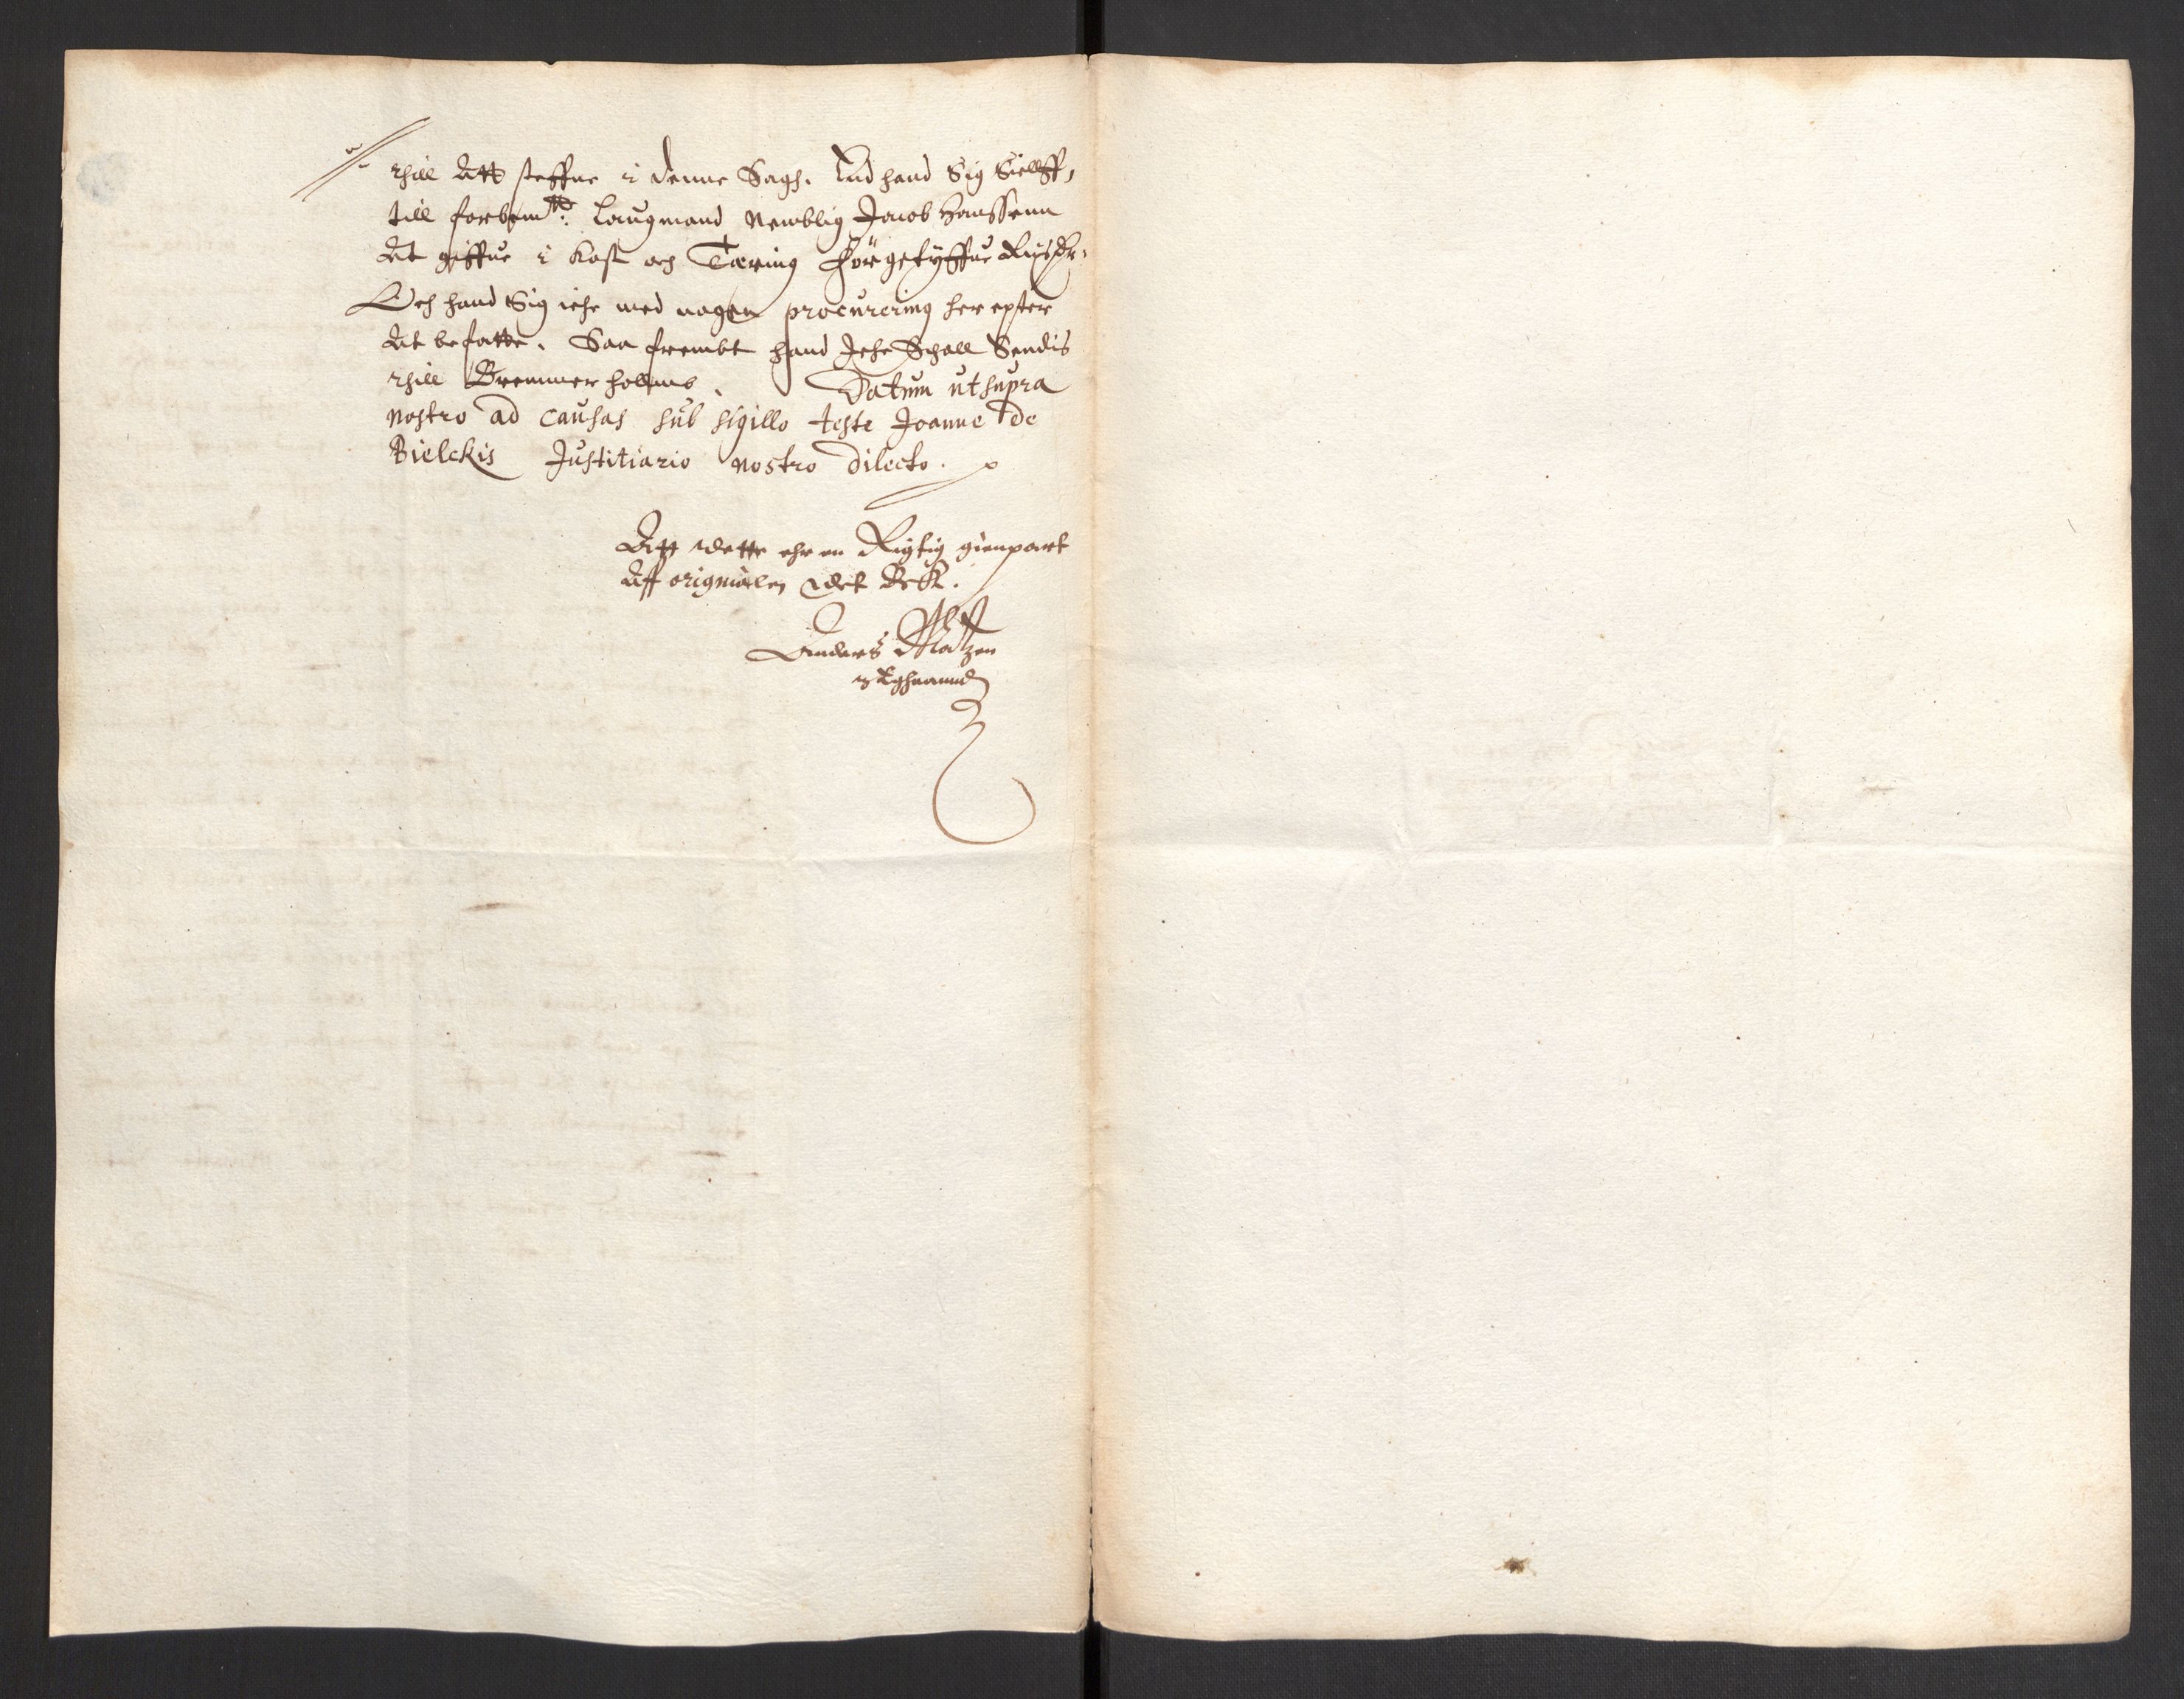 thill att steffne i denne Sagh. End hand Sig Siellff,
till forbemte: Laugmand Nemblig Jacob Hanssenn
at giffue i kost och Tæring Förgetyffue Rixdr.
Och hand Sig iche med nogen procurering her epster
at befatte. Saa frembt hand Iche Schall Sendis
thill Bremmerholms. Datum ut supra
nostro ad causas sub sigillo teste Joanne de
Bielckis Justitiario nostro dilecto.
Att dette ehr en Rigtig gienpart
aff originalen det Bek.
Anders Matzen